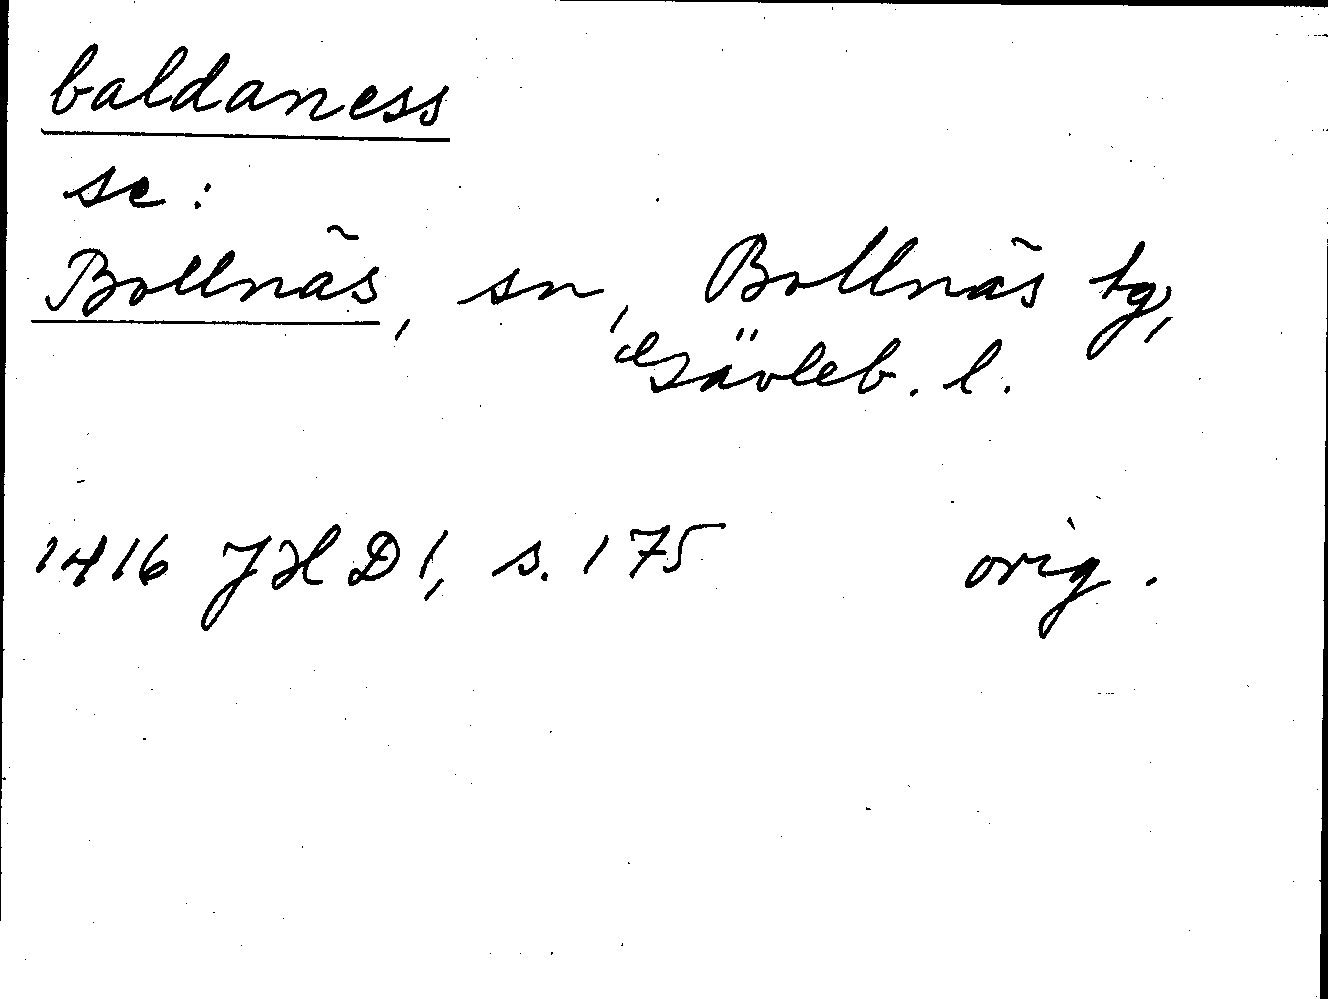 baldaness
se:
Bollnäs, sn, Bollnäs tg,
Gävleb. l.
1416 JHD 1, s. 175 orig.